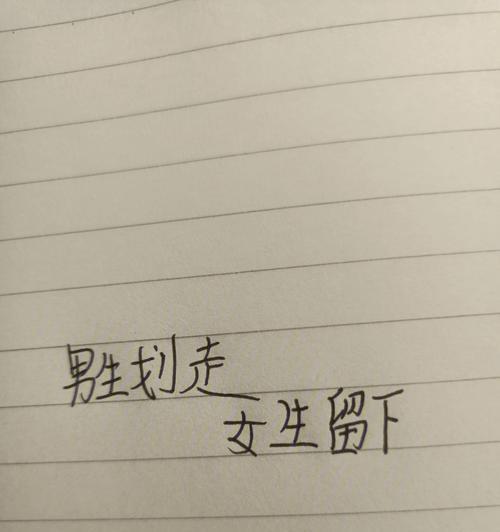 男生划走
女生留下